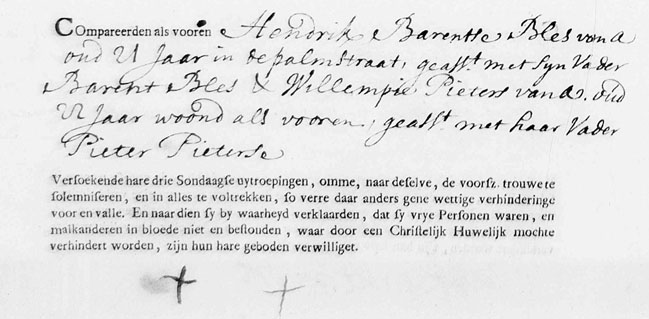 COmpareerden als vooren Hendrik Barentse Bles van A
oud 21 Jaar in de palmstraat, geasst. met syn Vader
Barent Bles & Willempie Pieters van A. oud
21 Jaar woond als vooren, geasst. met haar Vader
Pieter Pieterse
Versoekende hare drie Sondaagse uytroepingen, omme, naar deselve, de voorsz. trouwe te
solemniseren, en in alles te voltrekken, so verre daar anders gene wettige verhinderinge
voor en valle. En naar dien sy by waarheyd verklaarden, dat sy vrye Personen waren, en
malkanderen in bloede niet en bestonden, waar door een Christelijk Huwelijk mochte
verhindert worden, zijn hun hare geboden verwilliget.